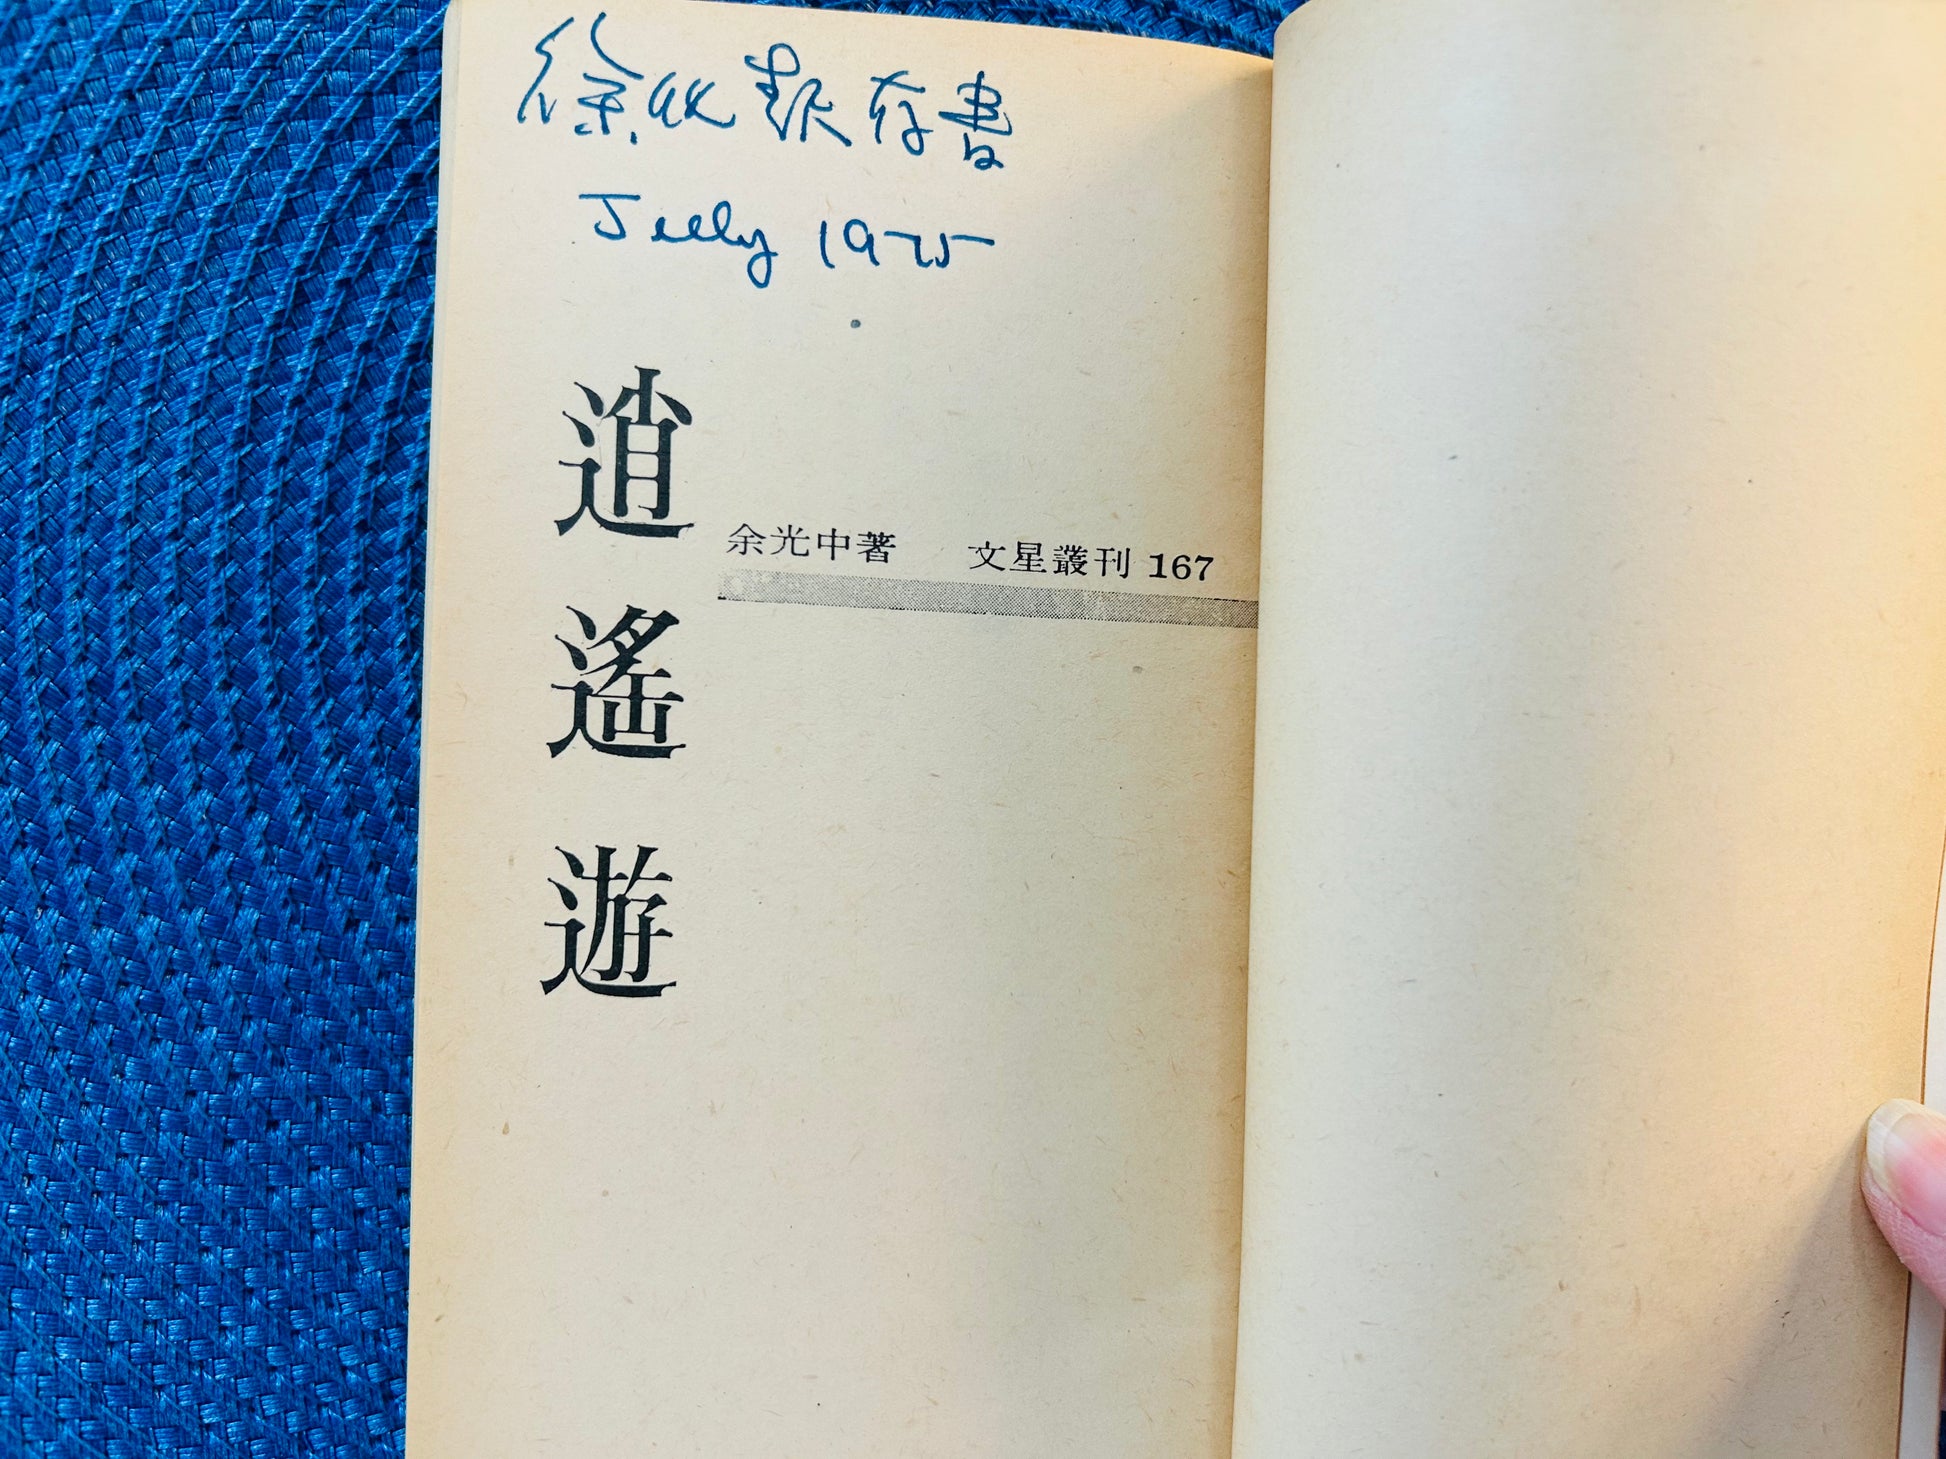 徐存書
July 1975
逍遙遊
余光中著 文星叢刊 167